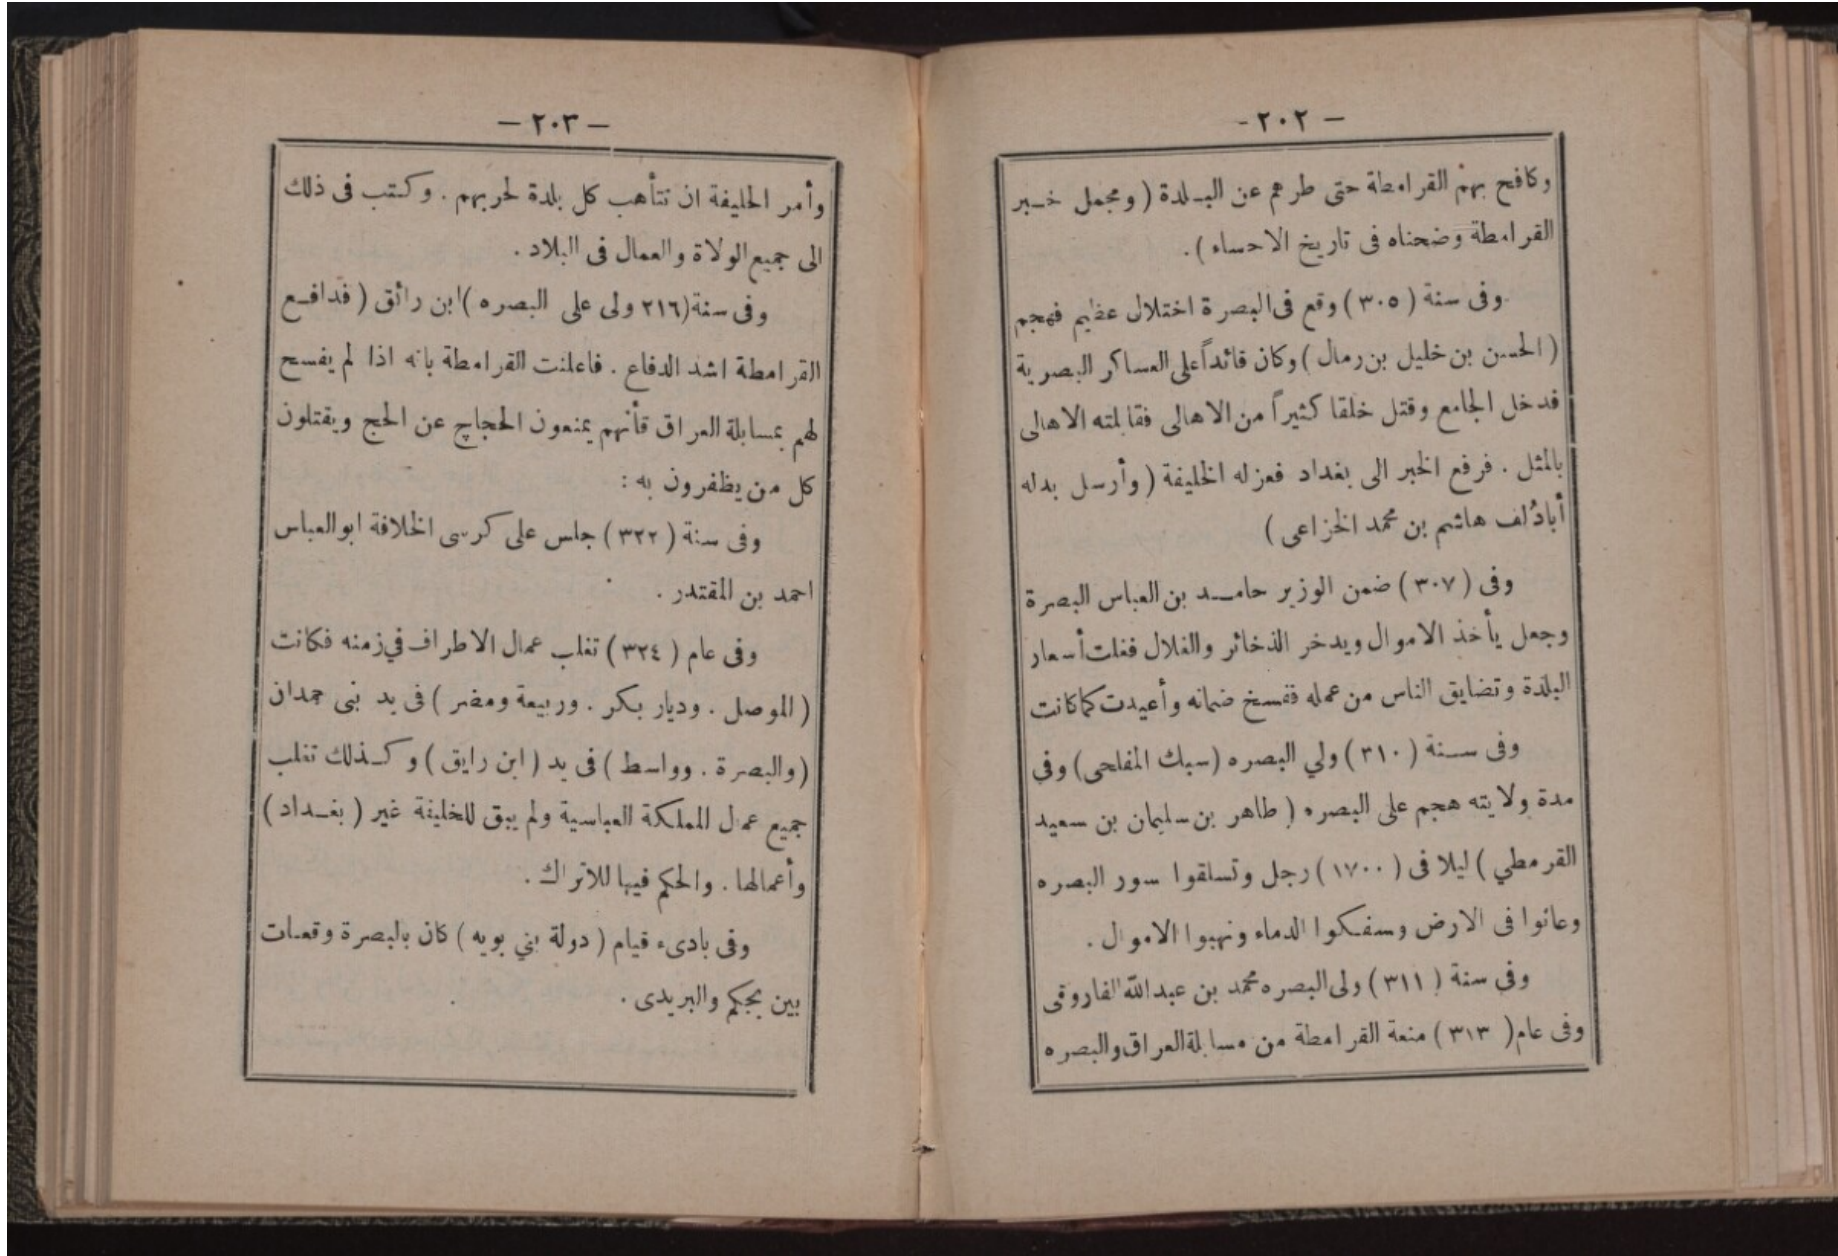 - ٢٠٢ -
وكافح بهم القرامطة حتى طرهم عن البـلدة ( ومجمل خـبر
القرامطة وضحناه فى تاريخ الاحساء ) .
وفى سنة ( ٣٠٥ ) وقع فى البصرة اختلال عظيم فهجم
( الحسن بن خليل بن رمال ) وكان قائداً على العساكر البصرية
فدخل الجامع وقتل خلقا كثيراً من الاهالى فقابلته الاهالى
بالمثل . فرفع الخبر الى بغداد فعزله الخليفة ( وأرسل بدله
أبادُلف هاشم بن محمد الخزاعى )
وفى ( ٣٠٧ ) ضمن الوزير حامـد بن العباس البصرة
وجعل يأخذ الاموال ويدخر الذخائر والغلال فغلت أسعار
البلدة وتضايق الناس من عمله ففسخ ضمانه وأعيدت كما كانت
وفى سـنة ( ٣١٠ ) ولي البصره (سبك المفلحى) وفي
مدة ولايته هجم على البصره ( طاهر بن سليمان بن سعيد
القرمطي ) ليلا فى ( ١٧٠٠ ) رجل وتسلقوا سور البصره
وعانوا فى الارض وسفـكوا الدماء ونهبوا الاموال .
وفى سنة ( ٣١١ ) ولى البصره محمد بن عبدالله الفاروقى
وفى عام ( ٣١٣ ) منعة القرامطة من مسابلة العراق والبصره
- ٢٠٣ -
وأمر الخليفة ان تتأهب كل بلدة لحربهم . وكـتب فى ذلك
الى جميع الولاة والعمال فى البلاد .
وفى سنة (٢١٦ ولى على البصره )ابن رائق ( فدافـع
القرامطة اشد الدفاع . فاعلنت القرامطة بانه اذا لم يفسح
لهم بمسابلة العراق قأنهم يمنعون الحجاج عن الحج ويقتلون
كل من يظفرون به :
وفى سنة ( ٣٢٢ ) جلس على كرسى الخلافة ابوالعباس
احمد بن المقتدر .
وفى عام ( ٣٢٤ ) تغلب عمال الاطراف في زمنه فكانت
( الموصل . وديار بكر . وربيعة ومضر ) فى يد بنى حمدان
(والبصرة . وواسط ) فى يد ( ابن رايق ) وكـذلك تغلب
جميع عمال المملكة العباسية ولم يبق للخليفة غير ( بغـداد )
وأعمالها . والحكم فيها للاتراك .
وفى بادىء قيام ( دولة بني بويه ) كان بالبصرة وقعات
بين بجكم والبريدى .